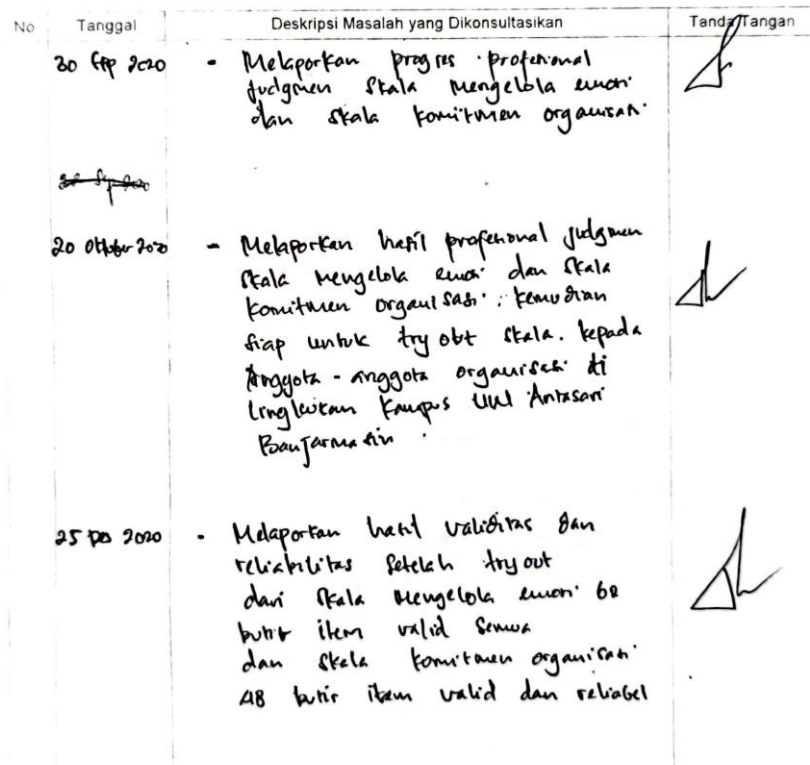 No Tanggal Deskripsi Masalah yang Dikonsultasikan Tanda Tangan
30 Sep 2020 - Melaporkan progres profesional
judgmen skala mengelola emosi
dan skala komitmen organisasi
20 Oktober 2020 - Melaporkan hasil profesional judgmen
skala mengelola emosi dan skala
komitmen organisasi. kemudian
siap untuk try out skala. kepada
Anggota - anggota organisasi di
Lingkungan Kampus UIN Antasari
Banjarmasin.
25 Des 2020 - Melaporkan hasil validitas dan
reliabilitas setelah try out
dari skala mengelola emosi 60
butir item valid semua
dan skala komitmen organisasi
48 butir item valid dan reliabel